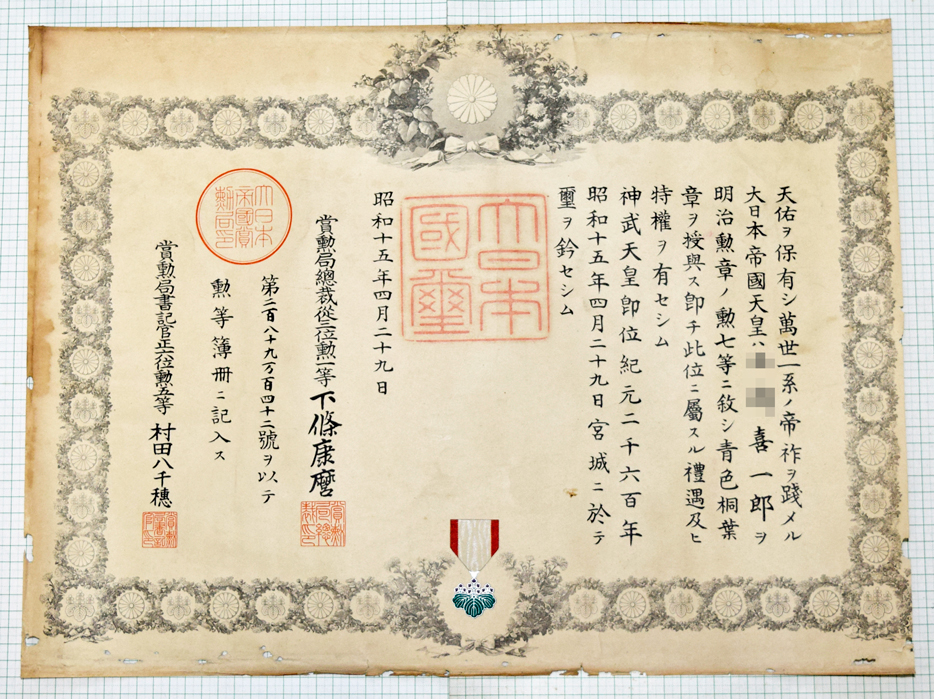 天佑ヲ保有シ萬世一系ノ帝祚ヲ踐メル
大日本帝國天皇ハ 喜一郎ヲ
明治勲章ノ勲七等ニ敘シ青色桐葉
章ヲ授與ス卽チ此位ニ屬スル禮遇及ヒ
特權ヲ有セシム
神武天皇卽位紀元二千六百年
昭和十五年四月二十九日宮城ニ於テ
璽ヲ鈐セシム
大日本
國璽
昭和十五年四月二十九日
賞勲局總裁從三位勲一等下條康麿
賞勲局總裁之印
第二百八十九万百四十二號ヲ以テ
勲等簿冊ニ記入ス
大日本
帝國賞
勲局印
賞勲局書記官正六位勲五等 村田八千穗